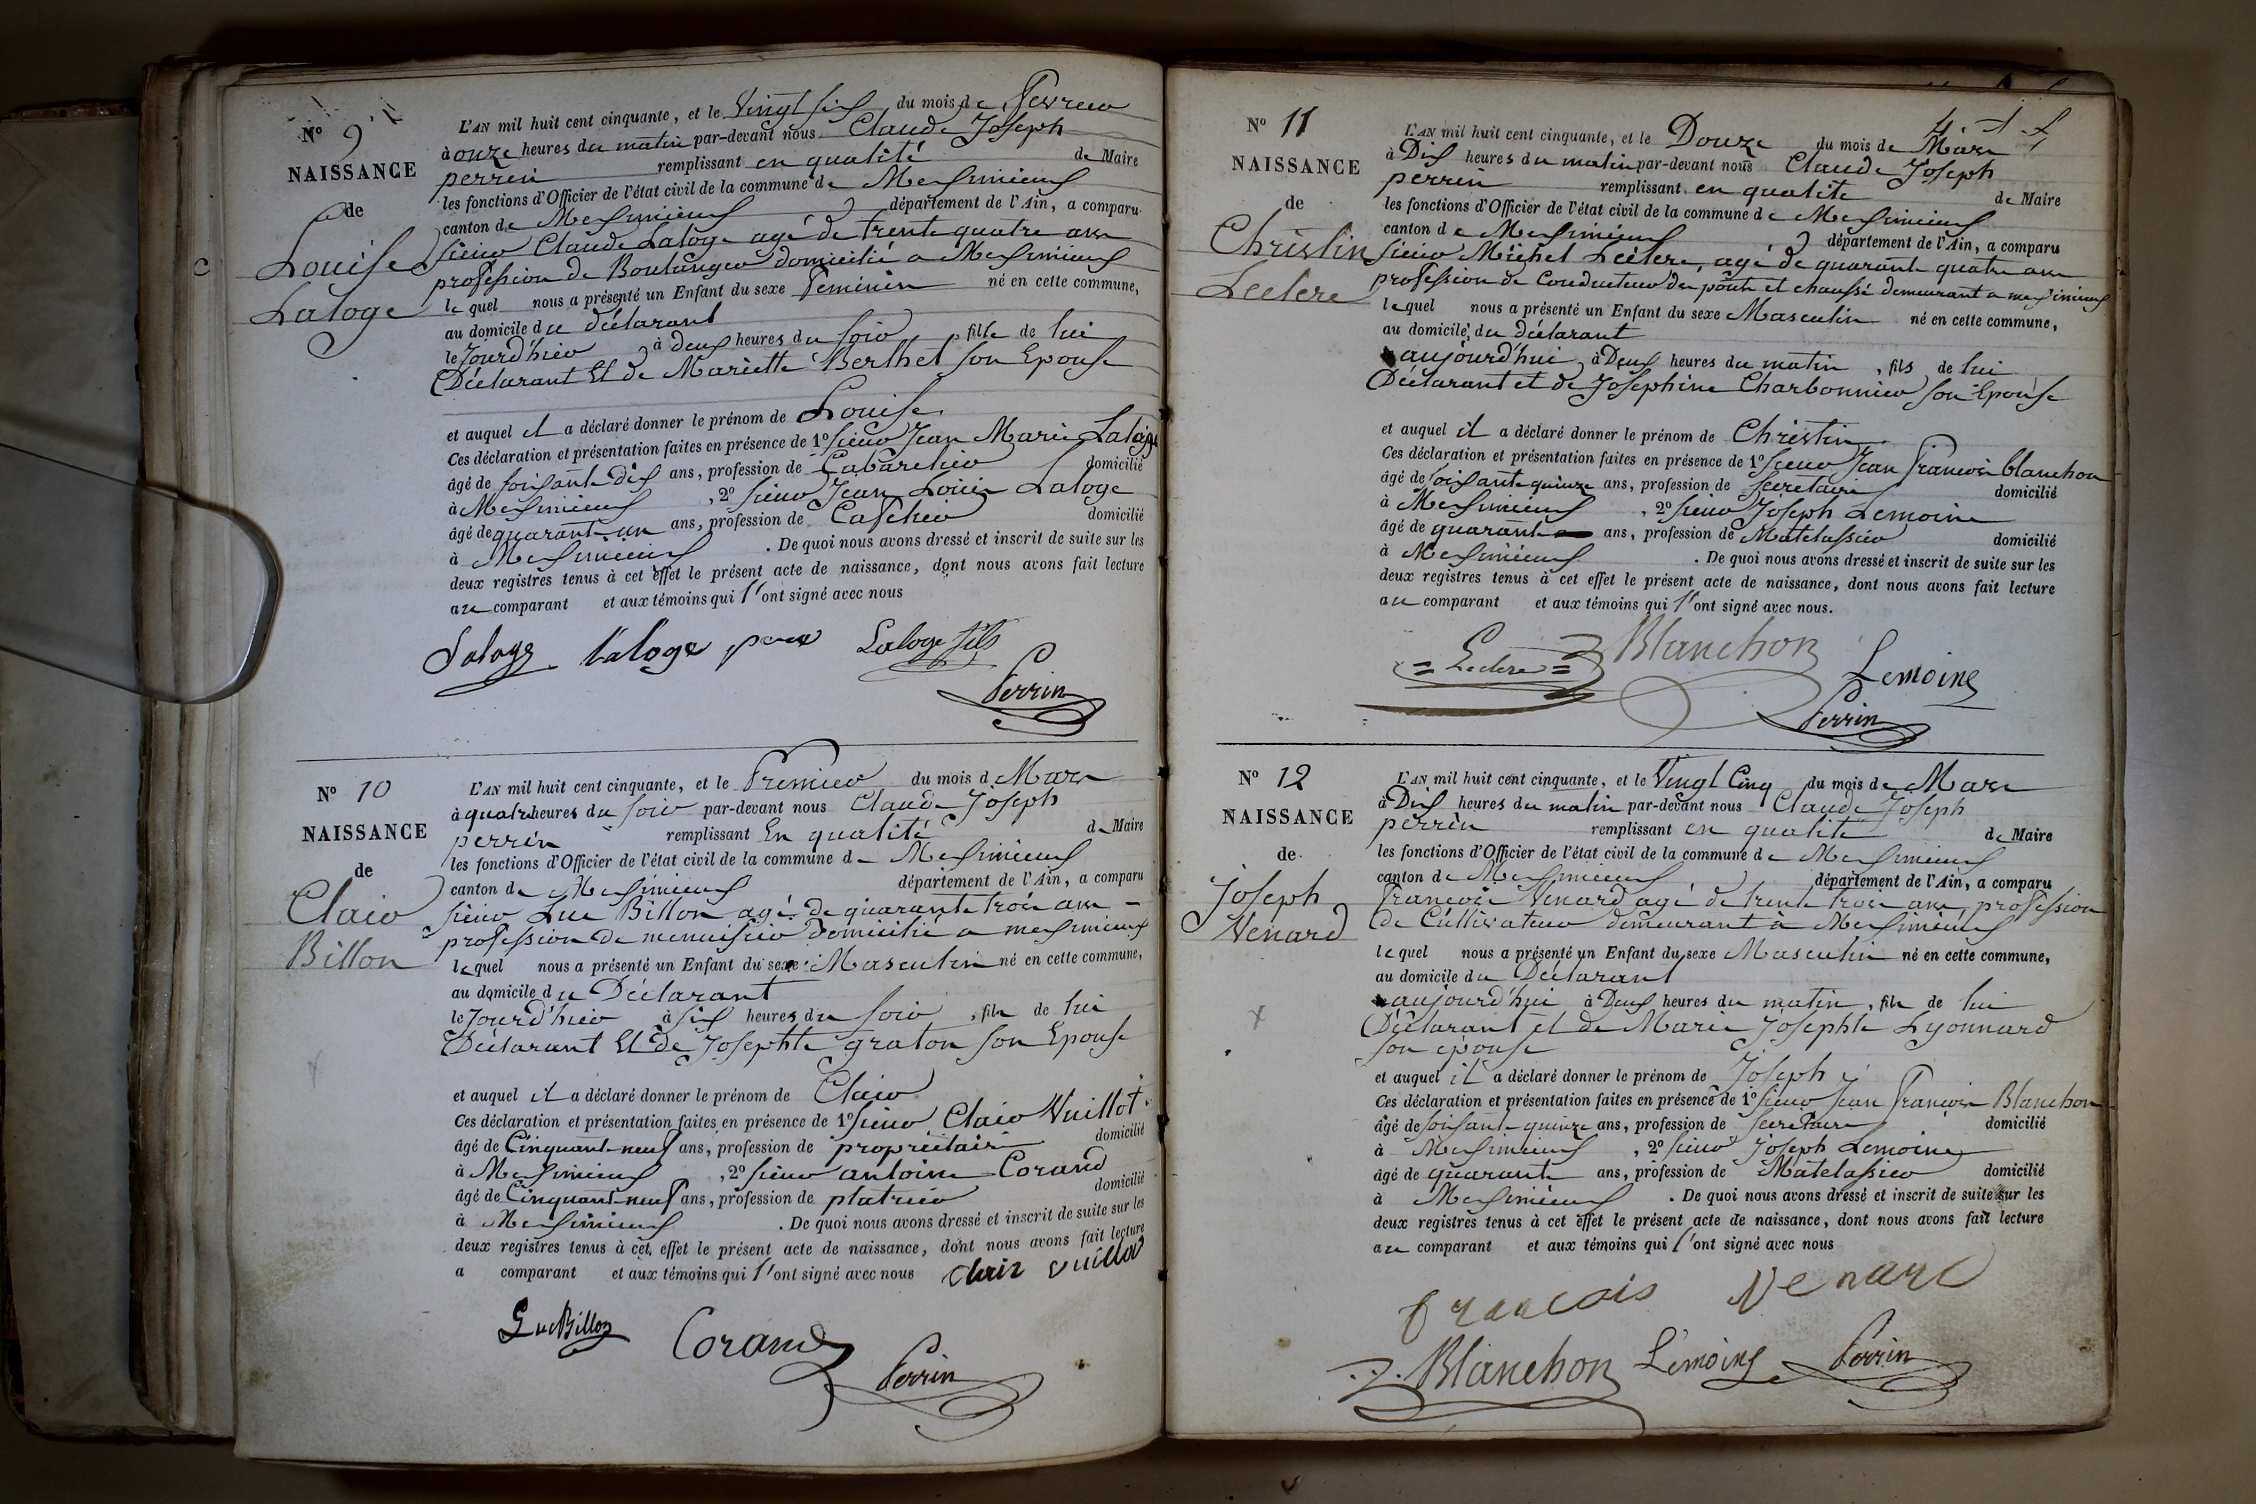 N° 9
NAISSANCE
de
Louise
Laloge
L'AN mil huit cent cinquante, et le Vingt six du mois de Fevrier
à onze heures du matin par-devant nous Claude Joseph
perrin remplissant en qualité de Maire
les fonctions d'Officier de l'état civil de la commune de Meximieux
canton de Meximieux département de l'Ain, a comparu
sieur Claude Laloge agé de trente quatre ans
profession de Boulanger domicilié a Meximieux
lequel nous a présenté un Enfant du sexe Feminin né en cette commune,
au domicile du déclarant
le Jourd'hier à deux heures du soir, fille de lui
Déclarant Et de Mariette Berthet son Epouse
et auquel il a déclaré donner le prénom de Louise
Ces déclaration et présentation faites en présence de 1° sieur Jean Marie Laloge
âgé de soixante dix ans, profession de Cabaretier domicilié
à Meximieux, 2° sieur Jean Louis Laloge
âgé de quarante un ans, profession de Cafetier domicilié
à Meximieux. De quoi nous avons dressé et inscrit de suite sur les
deux registres tenus à cet effet le présent acte de naissance, dont nous avons fait lecture
au comparant et aux témoins qui l'ont signé avec nous
Laloge laloge pere Laloge fils
Perrin
N° 10
NAISSANCE
de
Clair
Billon
L'AN mil huit cent cinquante, et le Premier du mois de Mars
à quatre heures du soir par-devant nous Claude Joseph
perrin remplissant En qualité de Maire
les fonctions d'Officier de l'état civil de la commune de Meximieux
canton de Meximieux département de l'Ain, a comparu
sieur Luc Billon agé de quarante trois ans
profession de menuisier domicilié a meximieux
lequel nous a présenté un Enfant du sexe Masculin né en cette commune,
au domicile du Déclarant
le Jourd'hier à six heures du soir, fils de lui
Déclarant Et de Josephte graton son Epouse
et auquel il a déclaré donner le prénom de Clair
Ces déclaration et présentation faites en présence de 1° sieur Clair Vuillot
âgé de Cinquante neuf ans, profession de propriétaire domicilié
à Meximieux, 2° sieur antoine Corand
âgé de Cinquante neuf ans, profession de platrier domicilié
à Meximieux. De quoi nous avons dressé et inscrit de suite sur les
deux registres tenus à cet effet le présent acte de naissance, dont nous avons fait lecture
a comparant et aux témoins qui l'ont signé avec nous Clair vuillot
Luc Billon Corand Perrin
N° 11
NAISSANCE
de
Christin
Leclerc
L'AN mil huit cent cinquante, et le Douze du mois de Mars
à Dix heures du matin par-devant nous Claude Joseph
perrin remplissant en qualité de Maire
les fonctions d'Officier de l'état civil de la commune de Meximieux
canton de Meximieux département de l'Ain, a comparu
sieur Michel Leclerc, agé de quarante quatre ans
profession de Conducteur des ponts et chaussé demeurant a meximieux
lequel nous a présenté un Enfant du sexe Masculin né en cette commune,
au domicile du déclarant
aujourd'hui à Deux heures du matin, fils de lui
Déclarant et de Josephine Charbonnier son Epouse
et auquel il a déclaré donner le prénom de Christin
Ces déclaration et présentation faites en présence de 1° sieur Jean Francois blanchon
âgé de soixante quinze ans, profession de secretaire domicilié
à Meximieux, 2° sieur Joseph Lemoine
âgé de quarante ans, profession de Matelassier domicilié
à Meximieux. De quoi nous avons dressé et inscrit de suite sur les
deux registres tenus à cet effet le présent acte de naissance, dont nous avons fait lecture
au comparant et aux témoins qui l'ont signé avec nous.
Leclerc Blanchon Lemoine
Perrin
N° 12
NAISSANCE
de
Joseph
Venard
L'AN mil huit cent cinquante, et le Vingt Cinq du mois de Mars
à Dix heures du matin par-devant nous Claude Joseph
perrin remplissant en qualité de Maire
les fonctions d'Officier de l'état civil de la commune de Meximieux
canton de Meximieux département de l'Ain, a comparu
Francois Venard agé de trente trois ans, profession
de Cultivateur demeurant à Meximieux
lequel nous a présenté un Enfant du sexe Masculin né en cette commune,
au domicile du Déclarant
aujourd'hui à Deux heures du matin, fils de lui
Déclarant et de Marie Josephte Lyonnard
son épouse
et auquel il a déclaré donner le prénom de Joseph
Ces déclaration et présentation faites en présence de 1° sieur Jean Francois Blanchon
âgé de soixante quinze ans, profession de secretaire domicilié
à Meximieux, 2° sieur Joseph Lemoine
âgé de quarante ans, profession de Matelassier domicilié
à Meximieux. De quoi nous avons dressé et inscrit de suite sur les
deux registres tenus à cet effet le présent acte de naissance, dont nous avons fait lecture
au comparant et aux témoins qui l'ont signé avec nous
francois Venard
Blanchon Lemoine Perrin